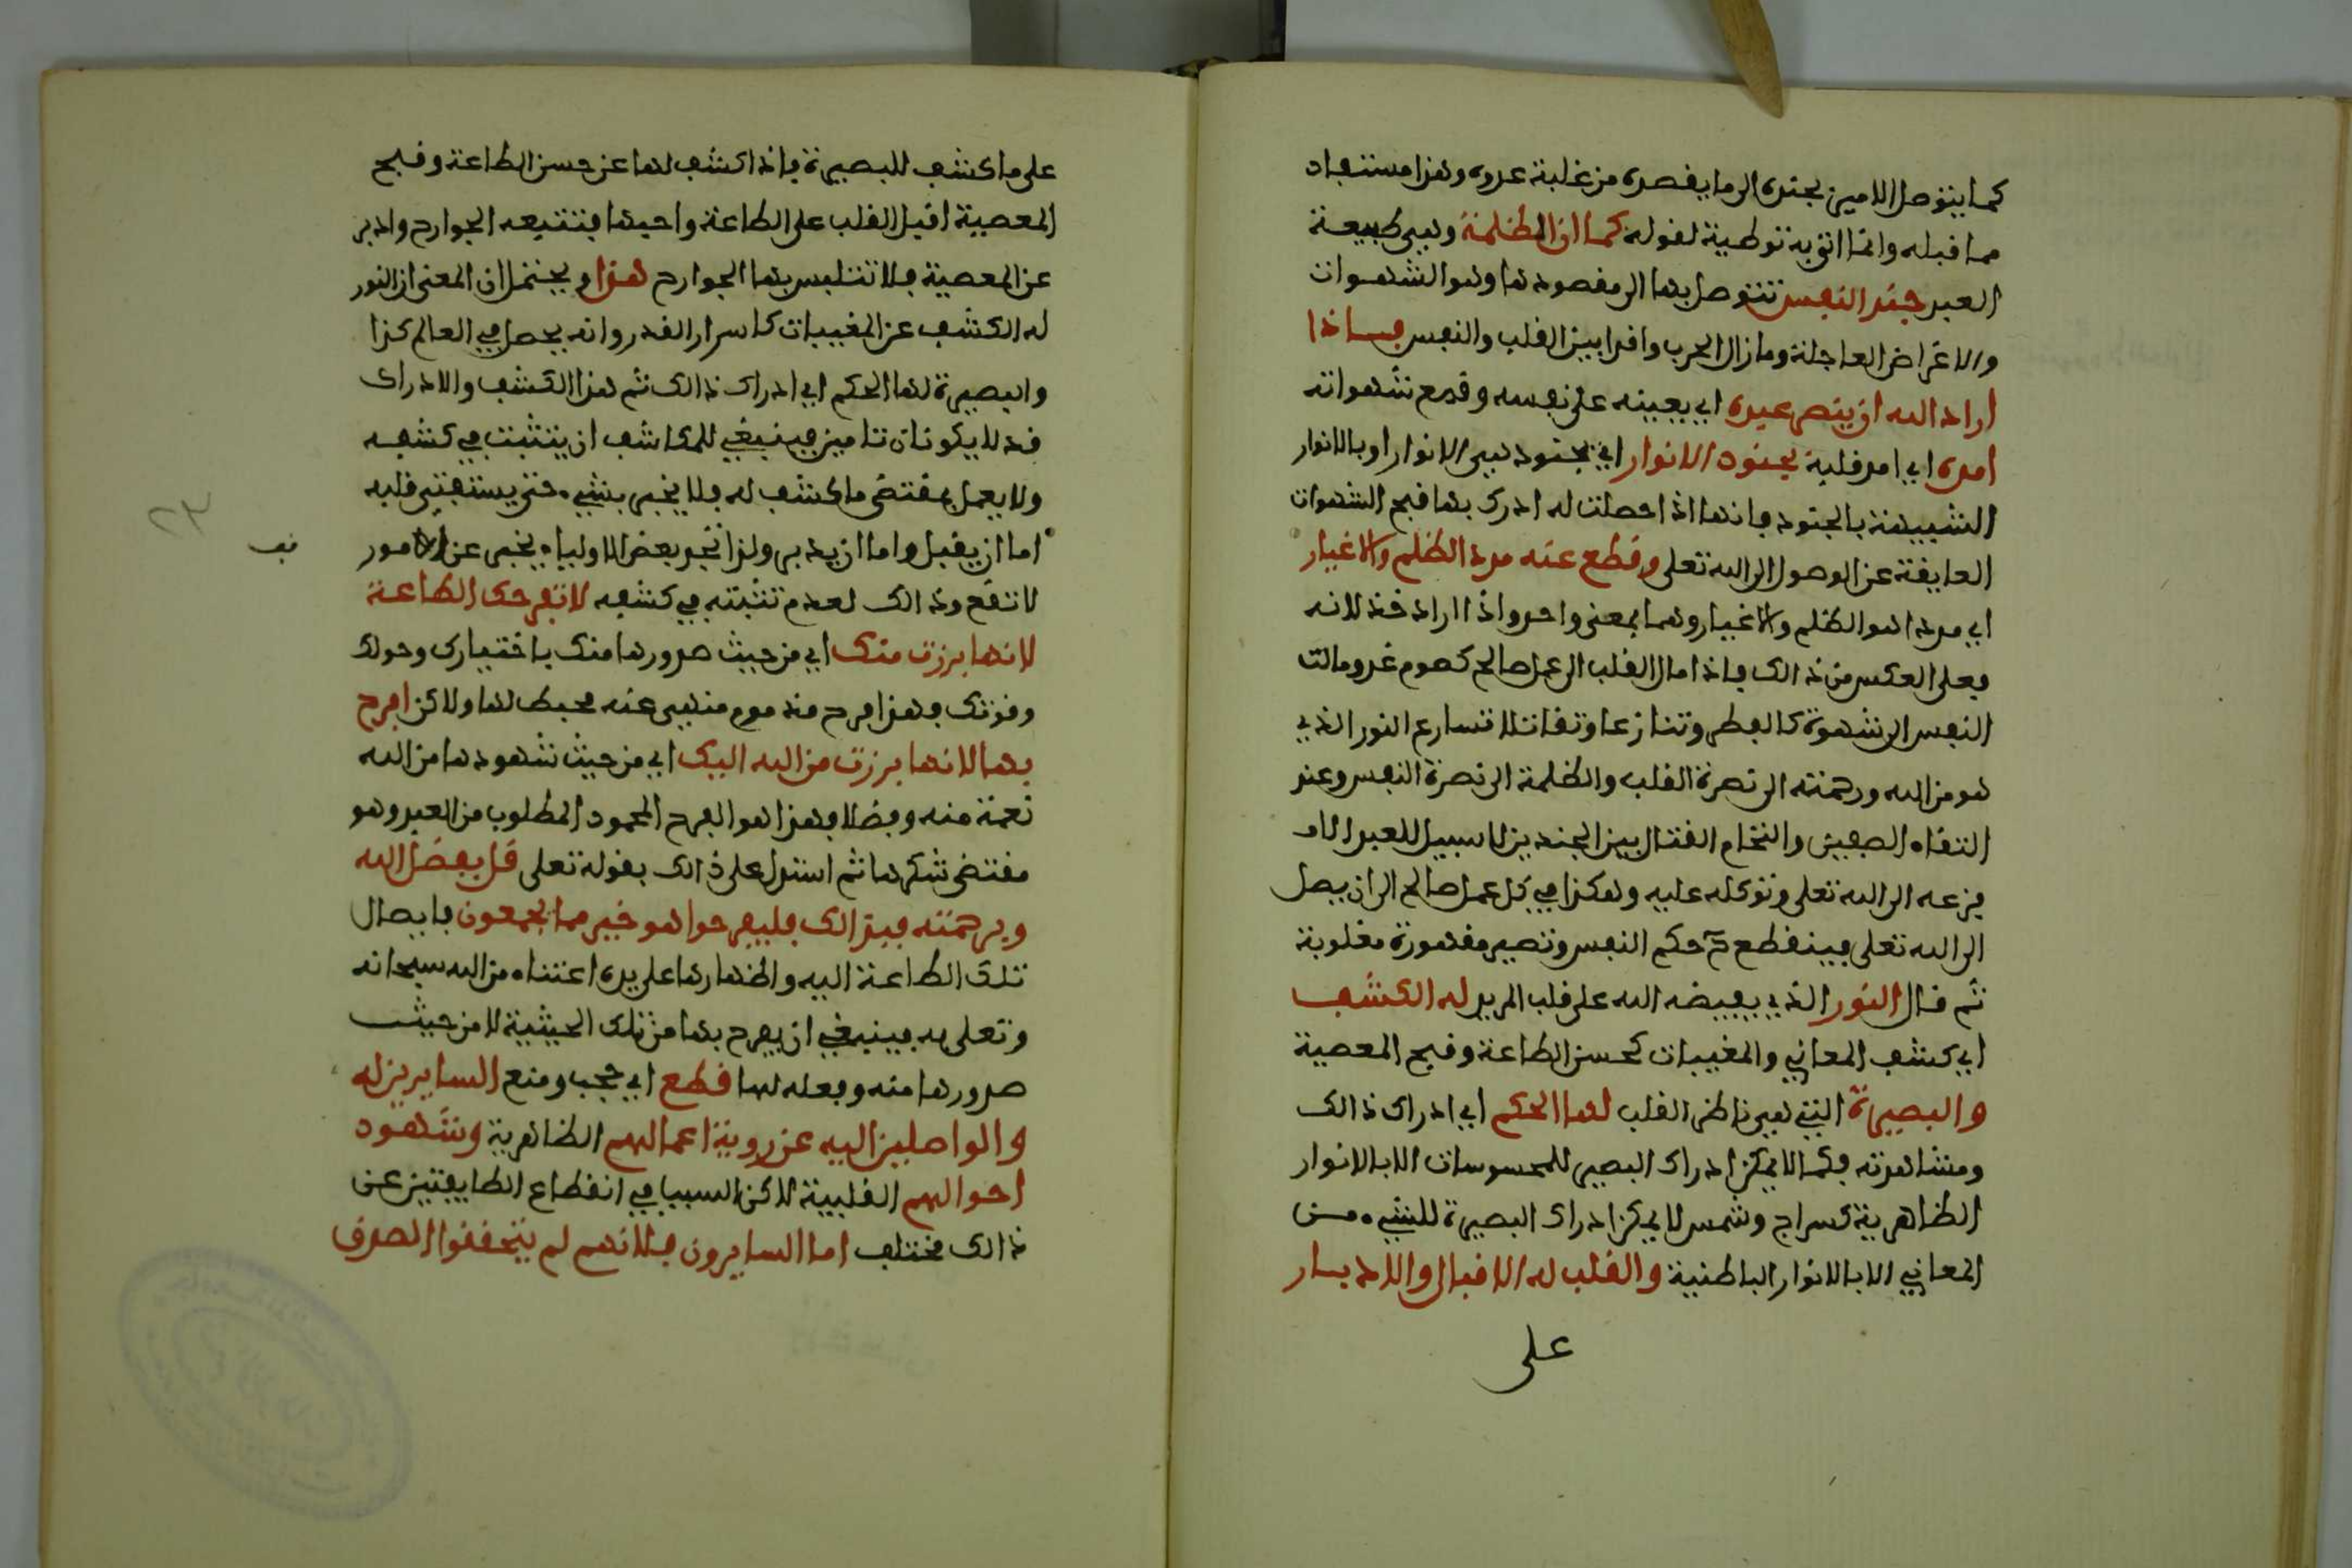 كما يتوصل الامير بجنده الى ما يقصده من غلبة عدوه وهذا مستفاد
مما قبله وانما اتى به توطية لقوله كما ان الظلمة وهي طبيعة
العبد جند النفس تتوصل بها الى مقصودها وهو الشهوات
والاغراض العاجلة وما زال الحرب واقعا بين القلب والنفس فاذا
اراد الله ان ينصر عبده اي يعينه على نفسه وقمع شهواته
امده اي امد قلبه بجنود الانوار اي بجنود هي الانوار او بالانوار
الشبيهة بالجنود فانها اذا حصلت له ادرك بها قبح الشهوات
العايقة عن الوصول الى الله تعلى وقطع عنه مدد الظلم والاغيار
اي مددا هو الظلم والاغيار وهما بمعنى واحد واذا اراد خذلانه
فعلى العكس من ذالك فاذا مال القلب الى عمل صالح كصوم غد ومالت
النفس الى شهوة كالفطر وتنازعا وتقاتلا تسارع النور الذي
هو من الله ورحمته الى نصرة القلب والظلمة الى نصرة النفس وعند
التقاء الصفين والتحام القتال بين الجندين لا سبيل للعبد الا
فزعه الى الله تعلى وتوكله عليه وهكذا في كل عمل صالح الى ان يصل
الى الله تعلى فينقطع ح حكم النفس وتصير مقهورة مغلوبة
ثم قال النور الذي يفيضه الله على قلب المريد له الكشف
اي كشف المعاني والمغيبات كحسن الطاعة وقبح المعصية
والبصيرة التي هي ناظر القلب لها الحكم اي ادراك ذالك
ومشاهدته فكما لا يمكن ادراك البصر للمحسوسات الا بالانوار
الظاهرية كسراج وشمس لا يمكن ادراك البصيرة للشيء من
المعاني الا بالانوار الباطنية والقلب له الاقبال والادبار
على
على ما كشف للبصيرة فاذا كشف لها عن حسن الطاعة وقبح
المعصية اقبل القلب على الطاعة واحبها فتتبعه الجوارح وادبر
عن المعصية فلا تتلبس بها الجوارح هذا ويحتمل ان المعنى ان النور
له الكشف عن المغيبات كاسرار القدر وانه يحصل في العالم كذا
والبصيرة لها الحكم اي ادراك ذالك ثم هذا الكشف والادراك
قد لا يكونان تامين فينبغي للمكاشف ان يتثبت في كشفه
ولا يعمل بمقتضى ما كشف له فلا يخبر بشيء حتى يستفتي قلبه
اما ان يقبل واما ان يدبر ولذا تجد بعض الاولياء يخبر عن امور
لا تقع وذالك لعدم تثبته في كشفه لا تفرحك الطاعة
لانها برزت منك اي من حيث صدورها منك باختيارك وحولك
وقوتك فهذا فرح مذموم منهي عنه محبط لها ولاكن افرح
بها لانها برزت من الله اليك اي من حيث شهودها من الله
نعمة منه وفضلا فهذا هو الفرح المحمود المطلوب من العبد وهو
مقتضى شكرها ثم استدل على ذالك بقوله تعلى قل بفضل الله
وبرحمته فبذالك فليفرحوا هو خير مما يجمعون فايصال
تلك الطاعة اليه واظهارها على يده اعتناء من الله سبحانه
وتعلى به فينبغي ان يفرح بها من تلك الحيثية لا من حيث
صدورها منه وفعله لها قطع اي حجب ومنع السايرين له
والواصلين اليه عن روية اعمالهم الظاهرية وشهود
احوالهم القلبية لاكن السبب في انقطاع الطايفتين عن
ذالك مختلف اما السايرون فلانهم لم يتحققوا الصدق
٢٣